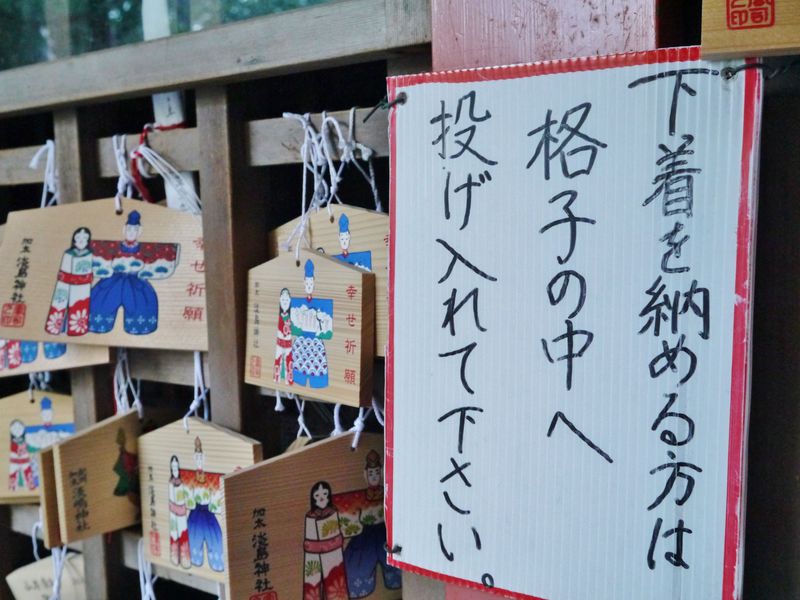 下着を納める方は
格子の中へ
投げ入れて下さい。
幸せ祈願
加太 淡島神社
幸せ祈願
加太 淡島神社
加太 淡嶋神社